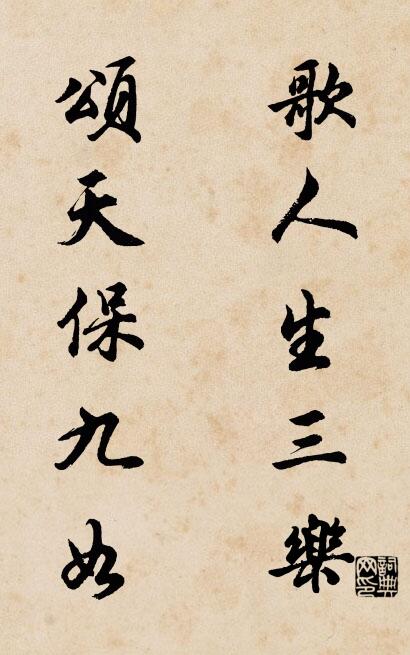 歌人生三樂
頌天保九如
詞典
网印